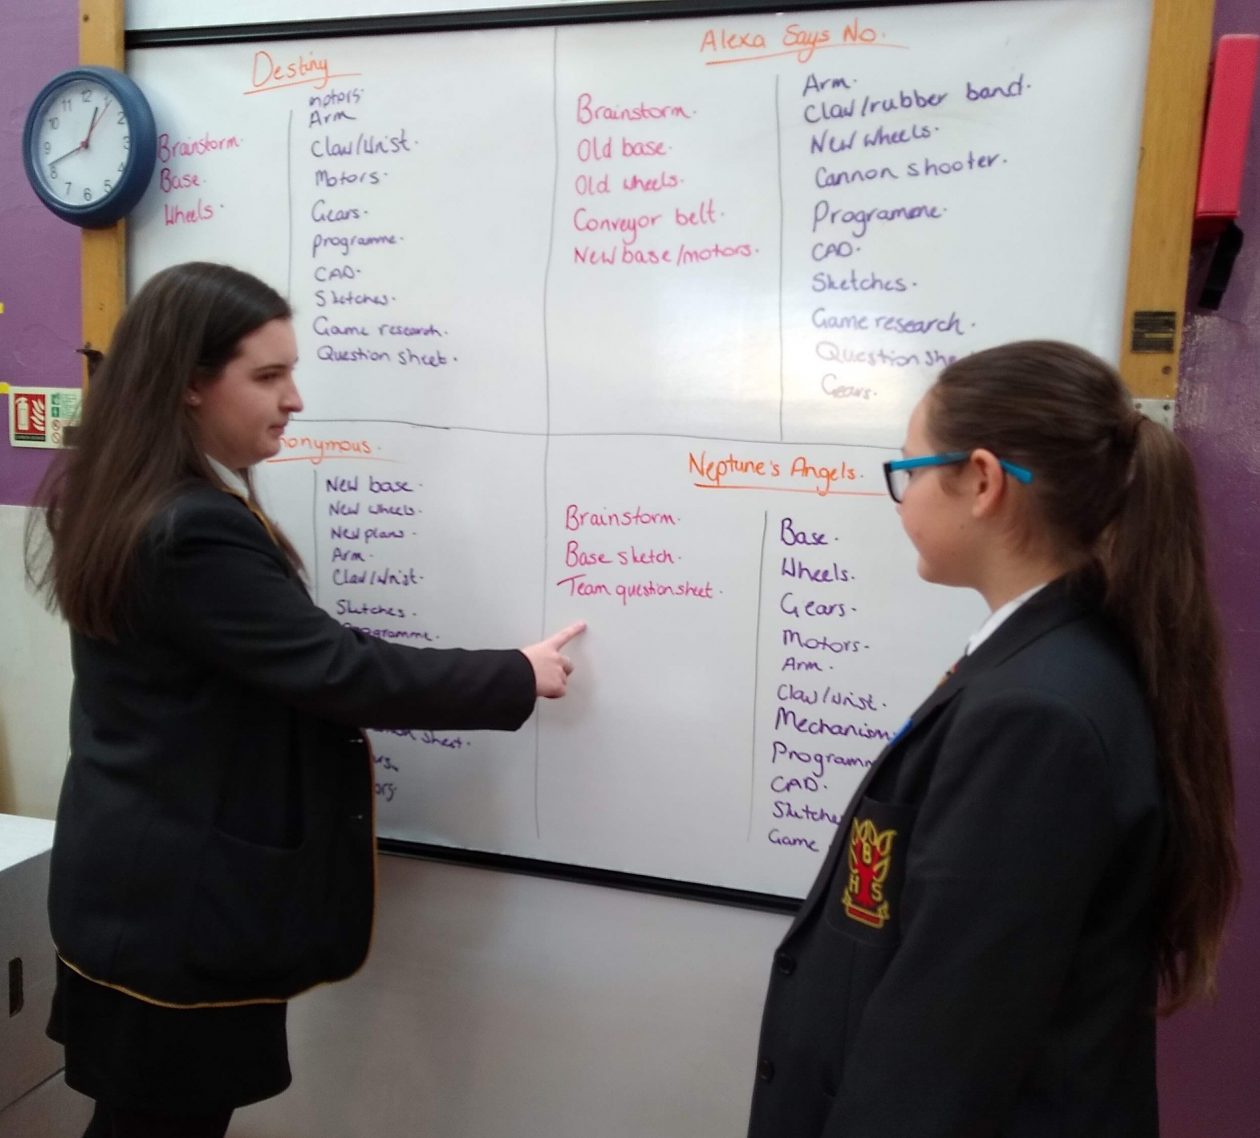 Destiny
Brainstorm.
Base.
Wheels.
motors.
Arm
Claw/Wrist.
Motors.
Gears.
programme.
CAD.
Sketches.
Game research.
Question sheet.
Alexa Says No.
Brainstorm.
Old base.
Old wheels.
Conveyor belt.
New base/motors.
Arm.
Claw/rubber band.
New wheels.
Cannon shooter.
Programme.
CAD.
Sketches.
Game research.
Question she
Gears.
onymous.
New base.
New wheels.
New plans.
Arm.
Claw/Wrist.
Sketches.
gramme.
sheet.
Neptune's Angels.
Brainstorm.
Base sketch.
Team question sheet.
Base.
Wheels.
Gears.
Motors.
Arm.
Claw/Wrist.
Mechanism
Programm
CAD.
Sketche
Game
12
1
2
3
4
5
6
7
8
9
10
11
B
H S